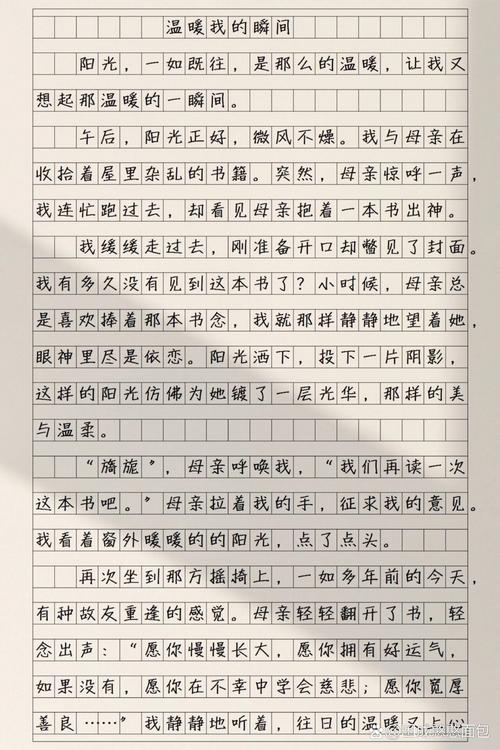 温暖我的瞬间
阳光，一如既往，是那么的温暖，让我又
想起那温暖的一瞬间。
午后，阳光正好，微风不燥。我与母亲在
收拾着屋里杂乱的书籍。突然，母亲惊呼一声，
我连忙跑过去，却看见母亲抱着一本书出神。
我缓缓走过去，刚准备开口却瞥见了封面。
我有多久没有见到这本书了？小时候，母亲总
是喜欢捧着那本书念，我就那样静静地望着她，
眼神里尽是依恋。阳光洒下，投下一片阴影，
这样的阳光仿佛为她镀了一层光华，那样的美
与温柔。
“旖旎”，母亲呼唤我，“我们再读一次
这本书吧。”母亲拉着我的手，征求我的意见。
我看着窗外暖暖的的阳光，点了点头。
再次坐到那方摇椅上，一如多年前的今天，
有种故友重逢的感觉。母亲轻轻翻开了书，轻
念出声：“愿你慢慢长大，愿你拥有好运气，
如果没有，愿你在不幸中学会慈悲；愿你宽厚
善良……”我静静地听着，往日的温暖又上心